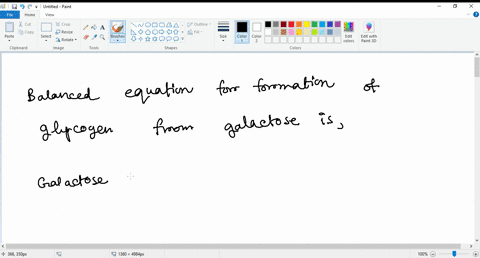 Untitled - Paint
File Home View
Paste Cut Copy Select Crop Resize Rotate Brushes Outline Fill Size Color 1 Color 2 Edit colors Edit with Paint 3D
Clipboard Image Tools Shapes Colors
Balanced equation for formation of
glycogen from galactose is,
Galactose
366, 350px 1380 × 4984px 100%